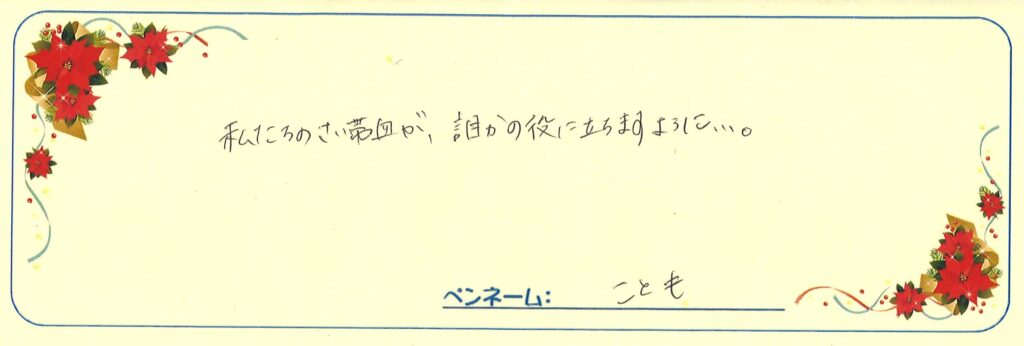 私たちのさい帯血が、誰かの役に立ちますように…。
ペンネーム: ことも